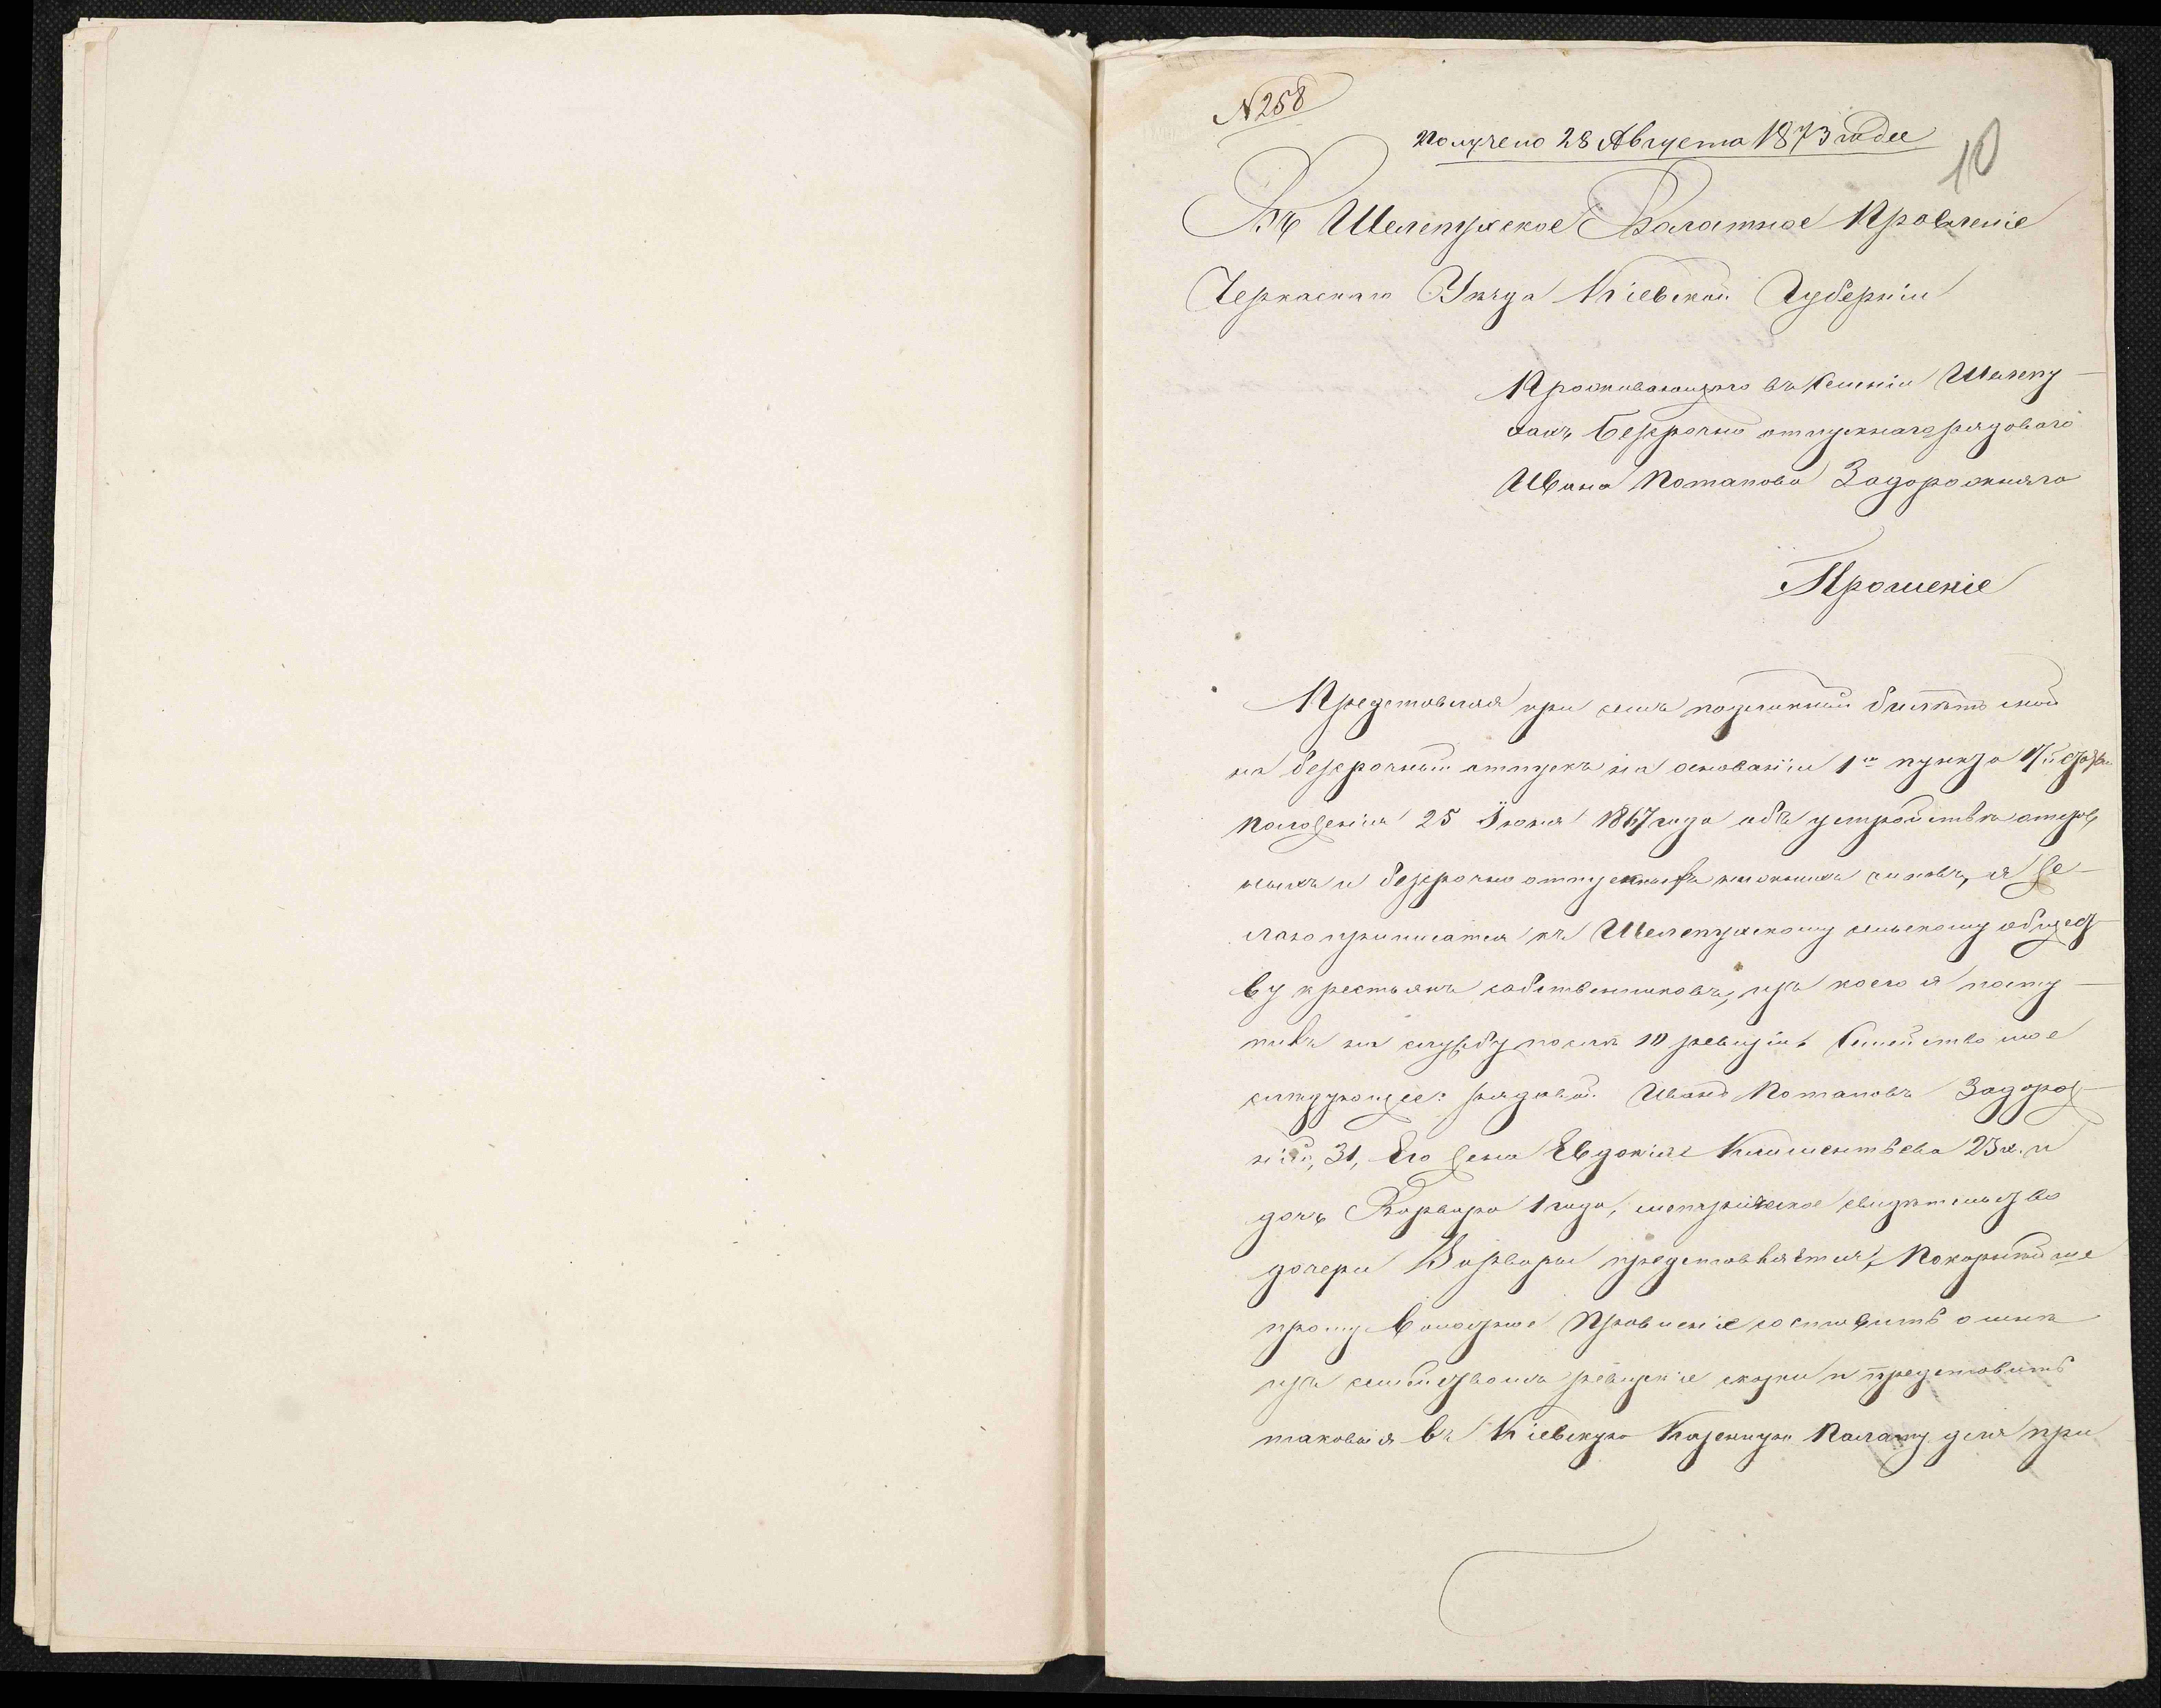 № 258
Получено 28 Августа 1873 года
10
Въ Шелепухское Валастное Провленіе
Черкаскаго Уѣзда Кіевской Губерніи
Проживающаго въ Селеніи Шелепу-
хахъ безсрочно отпускнаго рядоваго
Ивана Потапова Задорожняго
Прошеніе
Представляя при семъ подлинный билѣтъ мой
на безсрочный отпускъ на основаніи 1го пункта
положенія 25 Іюня 1867 года объ устройствѣ отстав
ныхъ и безсрочно отпускныхъ нижнихъ чиновъ, я же-
лаю приписатся къ Шелепухскому сельскому общест-
ву крестьянъ собственниковъ, изъ коего я посту-
пивъ на службу послѣ 10 ревизіи. Семейство мое
слѣдующее: рядовой Иванъ Потаповъ Задорож-
ній, 31, Его жена Евдокія Климентьева 23 л. и
дочь Варвара 1 года, метрическое свидѣтельство
дочери Варвары представляется, Покорнѣйше
прошу Волостное Правленіе составить о мнѣ
изъ семействомъ ревизкіе сказки и представить
таковыя въ Кіевскую Казенную Палату для при